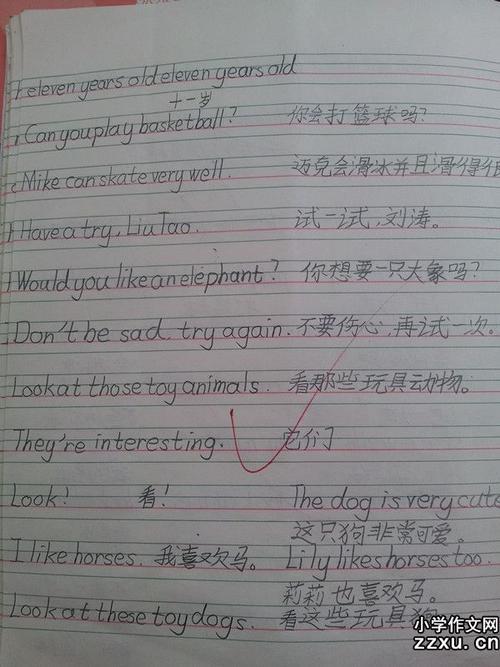 eleven years old eleven years old
十一岁
Can you play basketball? 你会打篮球吗?
Mike can skate very well. 迈克会滑冰并且滑得很
Have a try, Liu Tao. 试一试,刘涛。
Would you like an elephant? 你想要一只大象吗?
Don't be sad, try again. 不要伤心,再试一次。
Look at those toy animals. 看那些玩具动物。
They're interesting. 它们
Look! 看! The dog is very cute
这只狗非常可爱。
I like horses. 我喜欢马。 Lily likes horses too.
莉莉也喜欢马。
Look at these toy dogs. 看这些玩具狗
小学作文网
zzxu.cn